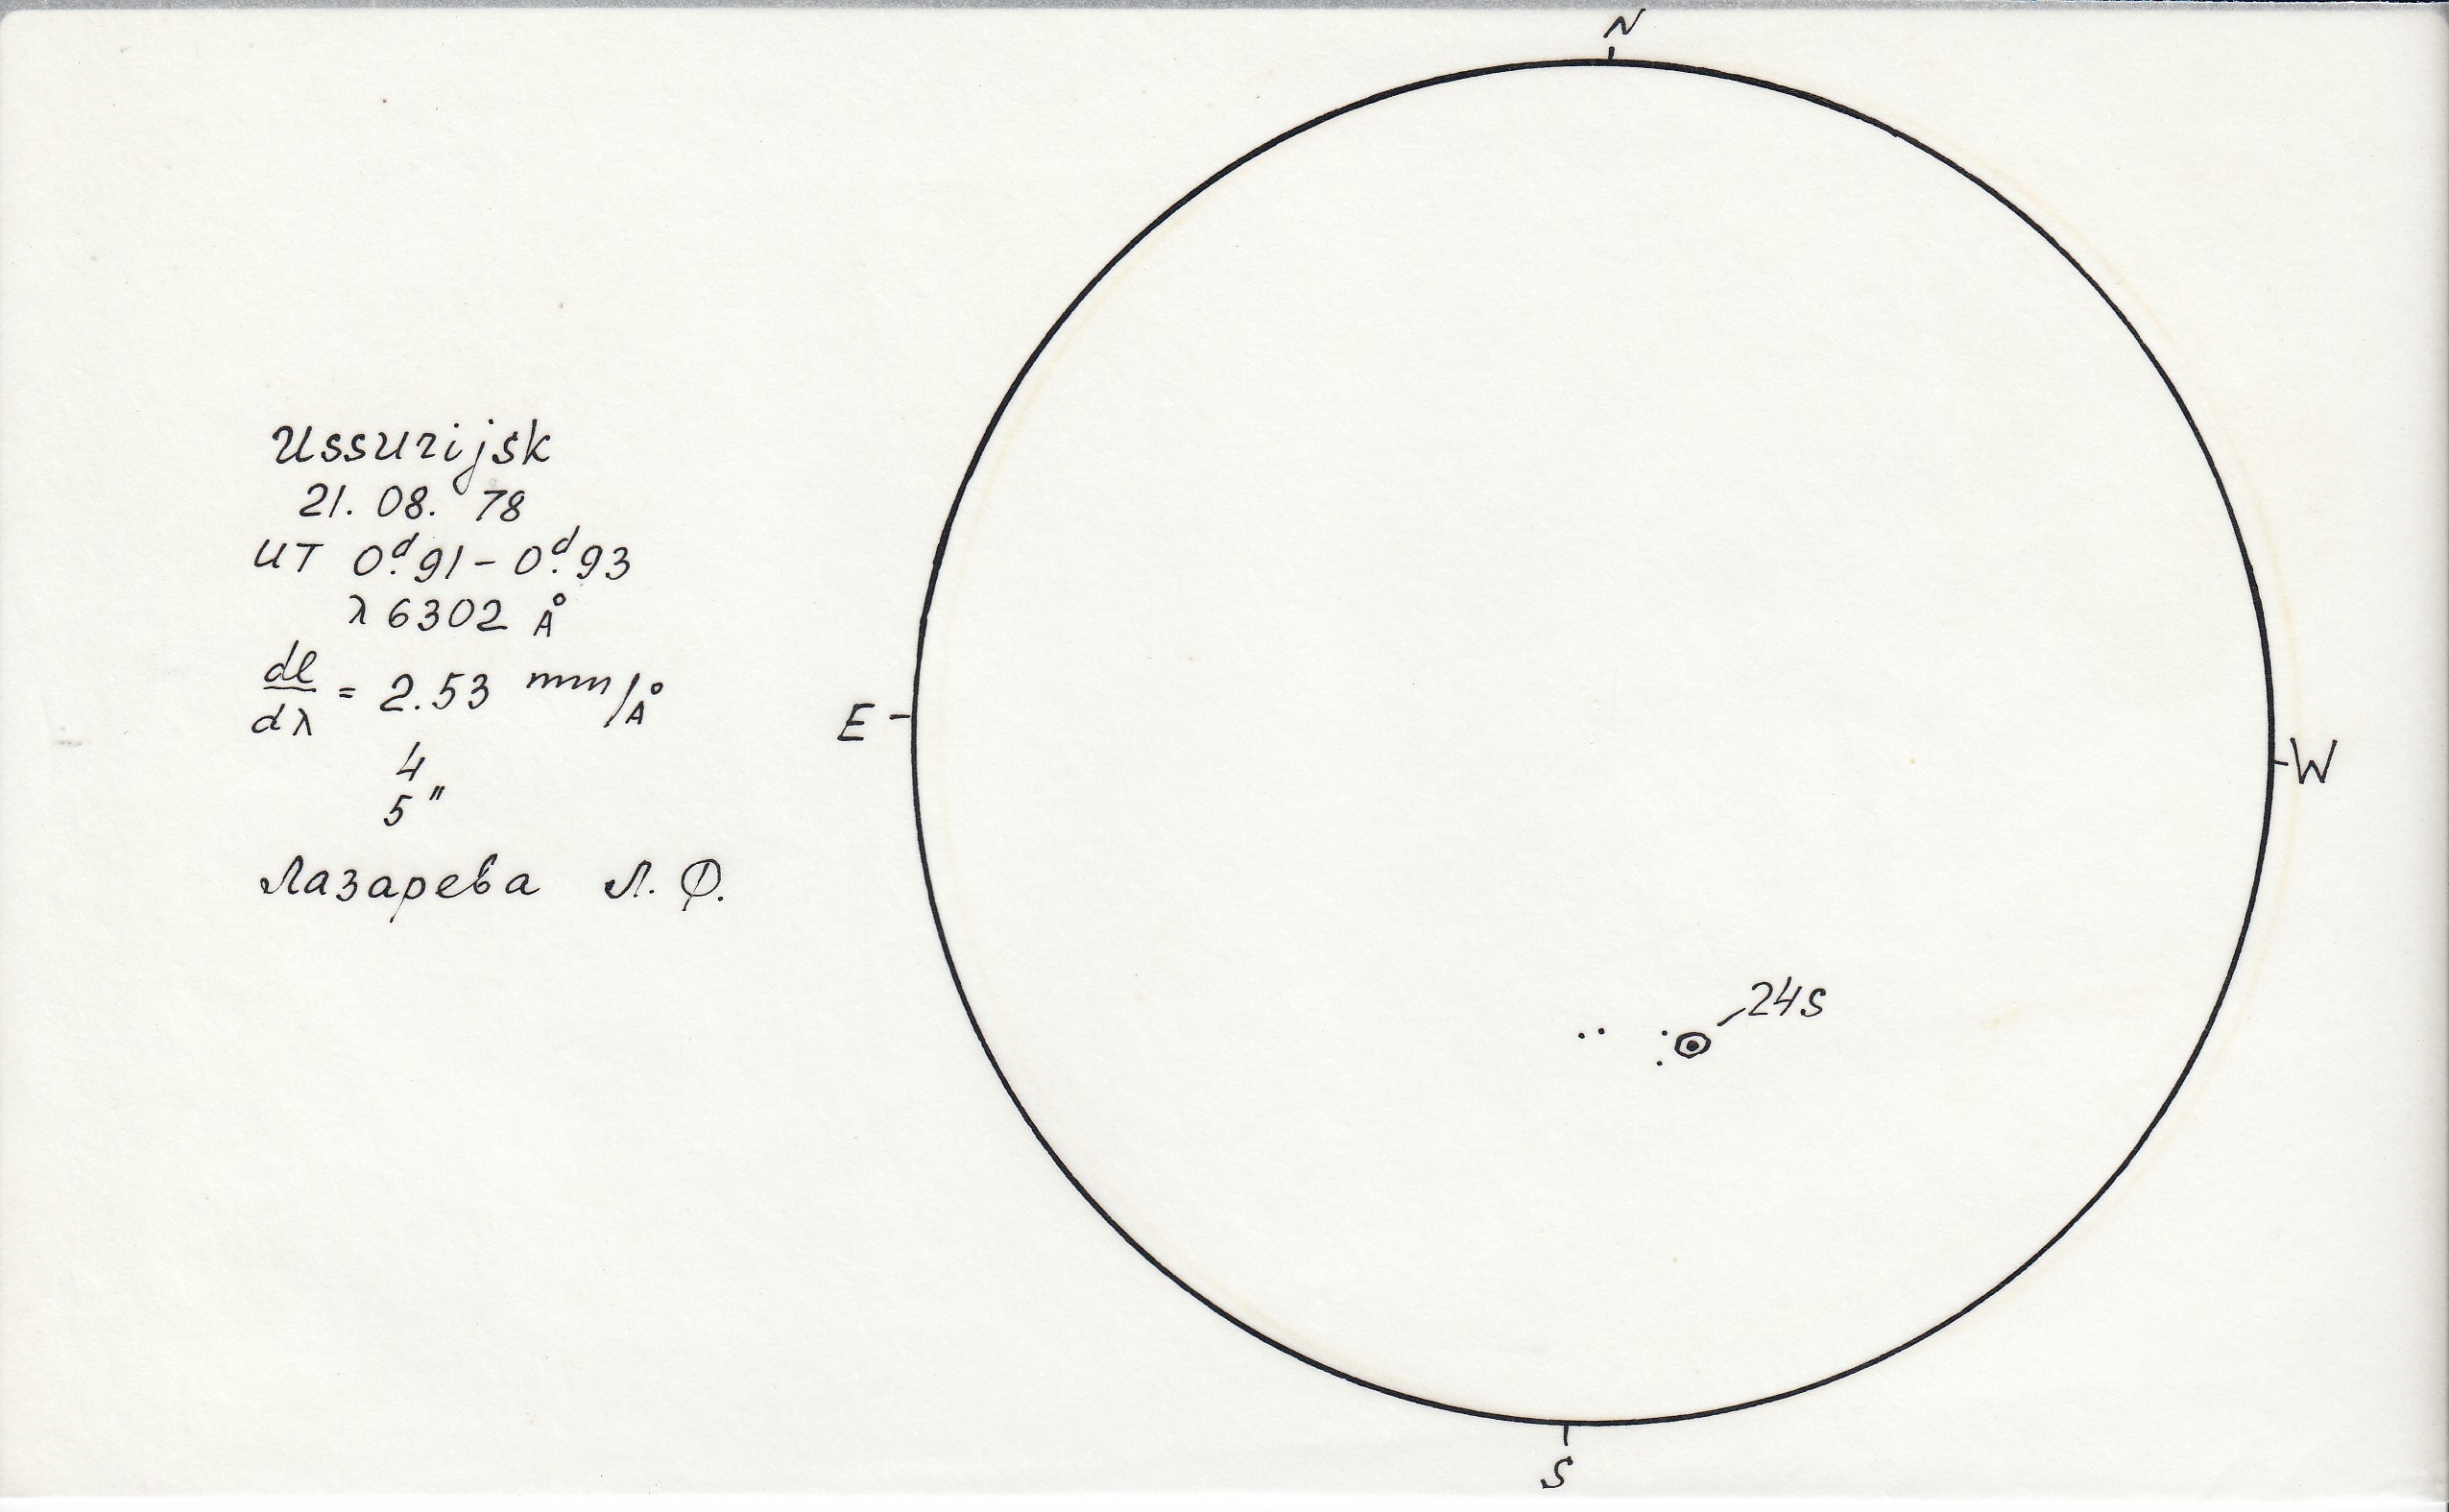 N
Ussurijsk
21. 08. 78
UT 0ᵈ.91 – 0ᵈ.93
λ 6302 Å
dl/dλ = 2.53 mm/Å
E
W
4
5"
Лазарева Л. Ф.
24S
S